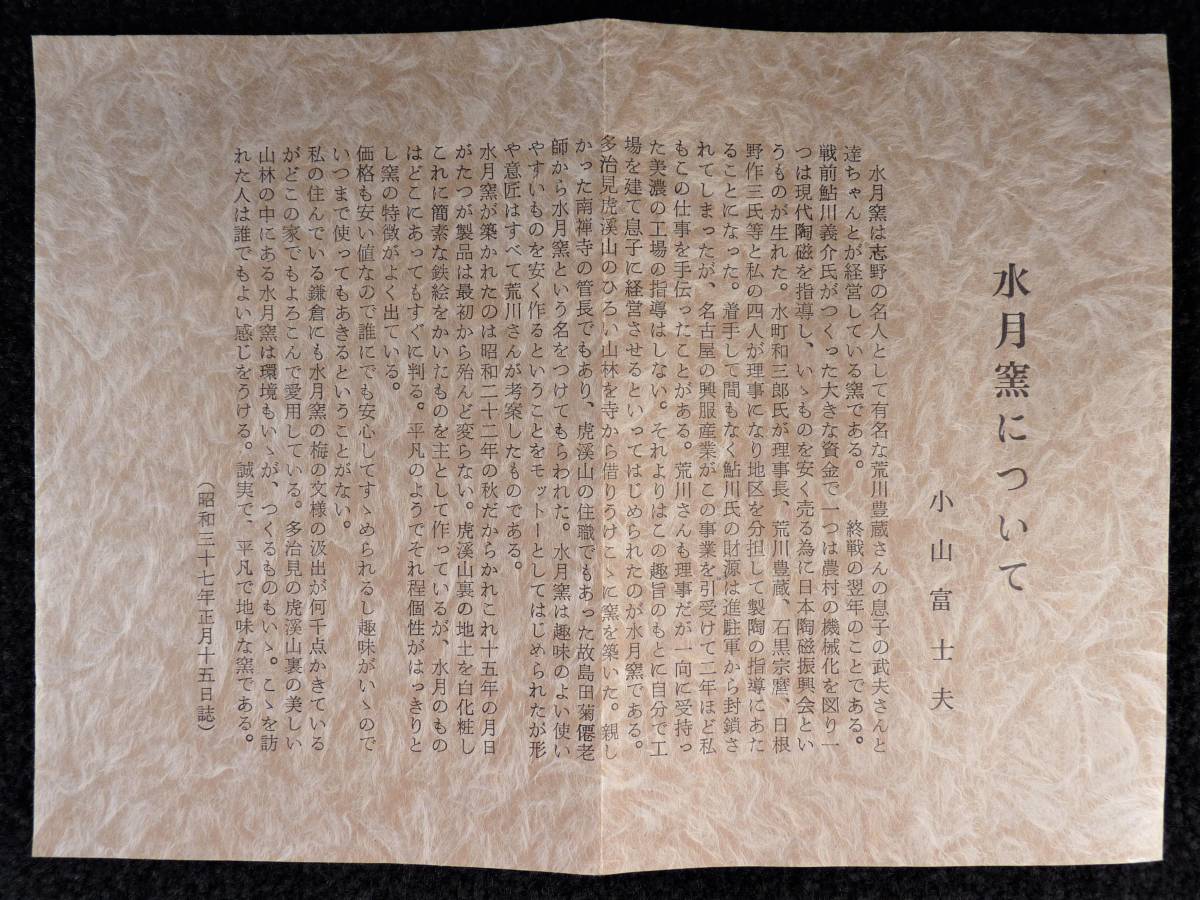 水月窯について
小山富士夫
水月窯は志野の名人として有名な荒川豊蔵さんの息子の武夫さんと
達ちゃんとが経営している窯である。　終戦の翌年のことである。
戦前鮎川義介氏がつくった大きな資金で一つは農村の機械化を図り一
つは現代陶磁を指導し、いゝものを安く売る為に日本陶磁振興会とい
うものが生れた。水町和三郎氏が理事長、荒川豊蔵、石黒宗麿、日根
野作三氏等と私の四人が理事になり地区を分担して製陶の指導にあた
ることになった。着手して間もなく鮎川氏の財源は進駐軍から封鎖さ
れてしまったが、名古屋の興服産業がこの事業を引受けて二年ほど私
もこの仕事を手伝ったことがある。荒川さんも理事だが一向に受持っ
た美濃の工場の指導はしない。それよりはこの趣旨のもとに自分で工
場を建て息子に経営させるといってはじめられたのが水月窯である。
多治見虎渓山のひろい山林を寺から借りうけこゝに窯を築いた。親し
かった南禅寺の管長でもあり、虎渓山の住職でもあった故島田菊僊老
師から水月窯という名をつけてもらわれた。水月窯は趣味のよい使い
やすいものを安く作るということをモットーとしてはじめられたが形
や意匠はすべて荒川さんが考案したものである。
水月窯が築かれたのは昭和二十二年の秋だからかれこれ十五年の月日
がたつが製品は最初から殆んど変らない。虎渓山裏の地土を白化粧し
これに簡素な鉄絵をかいたものを主として作っているが、水月のもの
はどこにあってもすぐに判る。平凡のようでそれ程個性がはっきりと
し窯の特徴がよく出ている。
価格も安い値なので誰にでも安心してすゝめられるし趣味がいゝので
いつまで使ってもあきるということがない。
私の住んでいる鎌倉にも水月窯の梅の文様の汲出が何千点かきている
がどこの家でもよろこんで愛用している。多治見の虎渓山裏の美しい
山林の中にある水月窯は環境もいゝが、つくるものもいゝ。こゝを訪
れた人は誰でもよい感じをうける。誠実で、平凡で地味な窯である。
（昭和三十七年正月十五日誌）